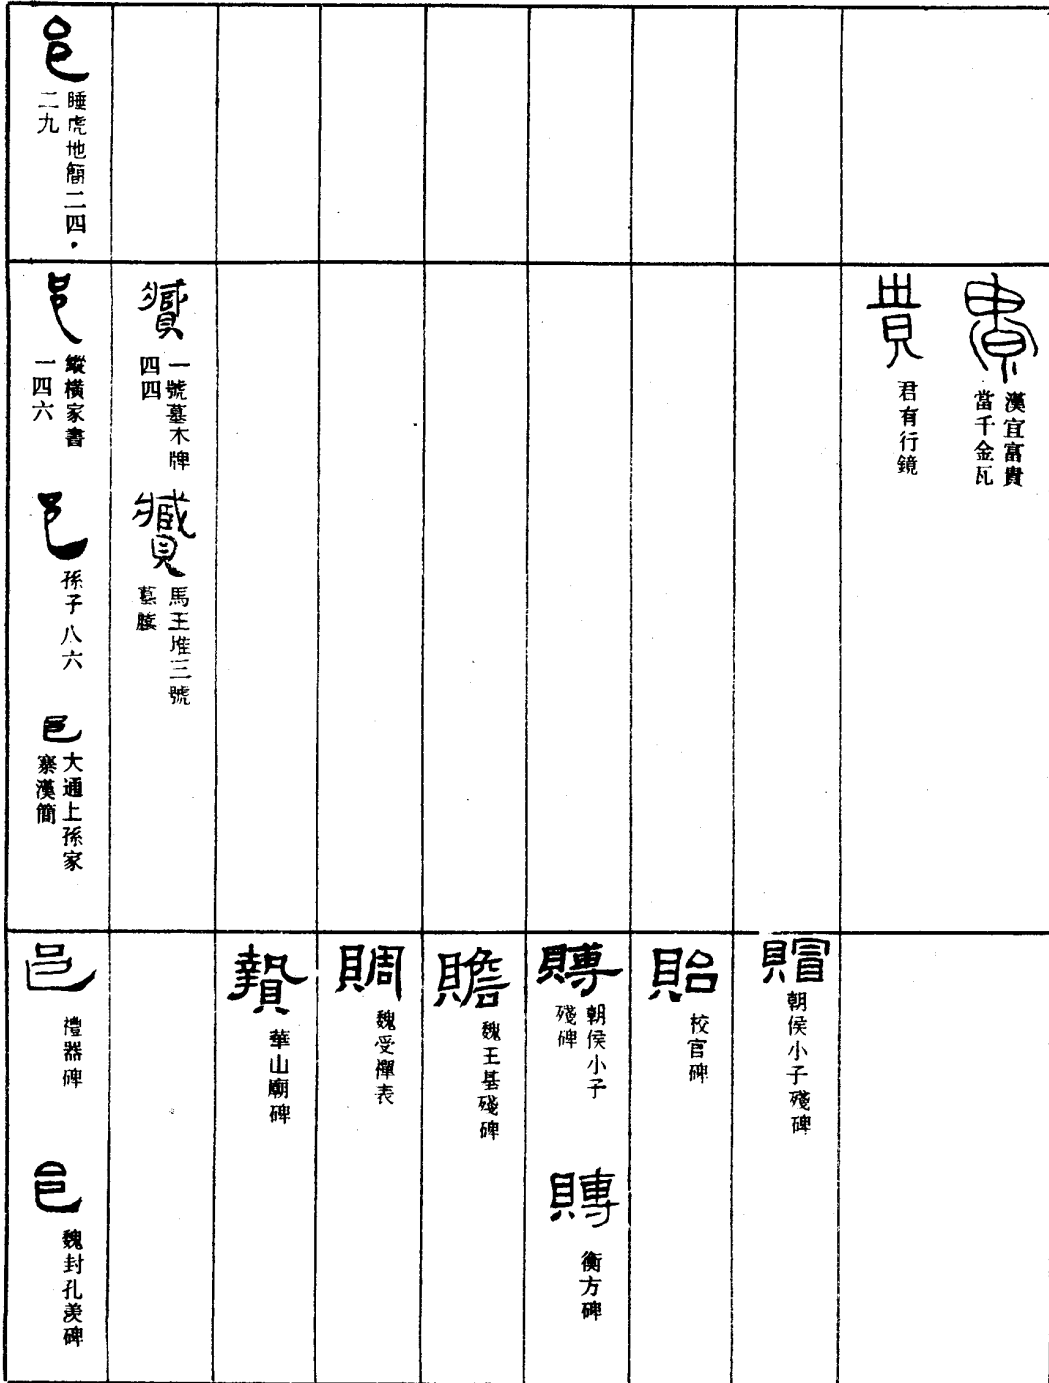 貴
漢宜富貴
當千金瓦
貴
君有行鏡
賵
朝侯小子殘碑
貽
校官碑
賻
朝侯小子
殘碑
賻
衡方碑
贍
魏王基殘碑
賙
魏受禪表
贄
華山廟碑
一號墓木牌
四四
馬王堆三號
墓牘
邑
睡虎地簡二四・
二九
邑
縱橫家書
一四六
邑
孫子八六
邑
大通上孫家
寨漢簡
邑
禮器碑
邑
魏封孔羨碑